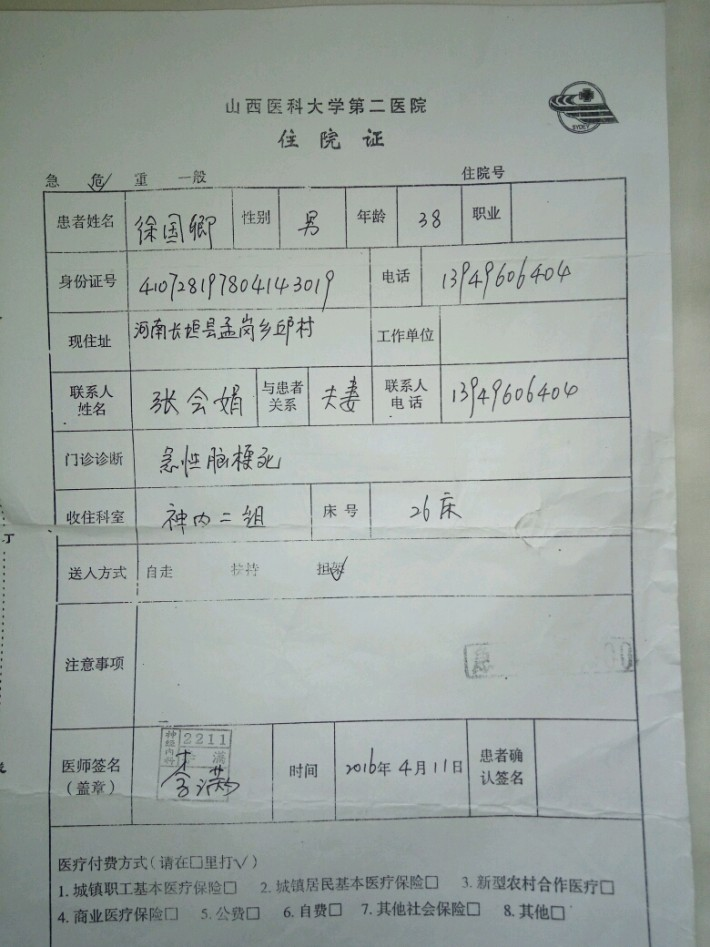 山西医科大学第二医院
住院证
急 危✓ 重 一般 住院号
患者姓名 徐国卿 性别 男 年龄 38 职业
身份证号 410728197804143019 电话 13949606404
现住址 河南长垣县孟岗乡邱村 工作单位
联系人姓名 张会娟 与患者关系 夫妻 联系人电话 13949606404
门诊诊断 急性脑梗死
收住科室 神内二组 床号 26床
送入方式 自走 扶持 担架✓
注意事项
医师签名(盖章) 神经内科 2211 时间 2016年4月11日 患者确认签名
医疗付费方式(请在□里打✓)
1. 城镇职工基本医疗保险□ 2. 城镇居民基本医疗保险□ 3. 新型农村合作医疗□
4. 商业医疗保险□ 5. 公费□ 6. 自费□ 7. 其他社会保险□ 8. 其他□